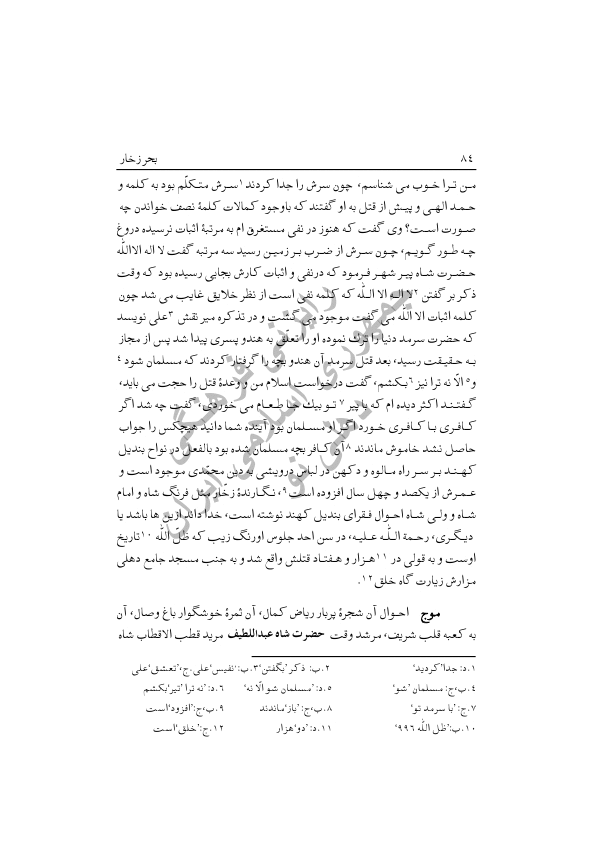 ۸٤ بحر زخار
مـن تـرا خـوب می شناسم، چون سرش را جدا کردند۱ سـرش متـکلّم بود به کلمه و
حـمـد الهـی و پیـش از قتل به او گفتند که باوجود کمالات کلمۀ نصف خواندن چه
صـورت اسـت؟ وی گفت که هنوز در نفی مستغرق ام به مرتبۀ اثبات نرسیده دروغ
چـه طـور گـویـم، چـون سـرش از ضـرب بـر زمیـن رسید سه مرتبه گفت لا اله الاالله
حـضـرت شـاه پیـر شهـر فـرمـود که درنفی و اثبات کارش بجایی رسیده بود که وقت
ذکر بر گفتن ۲لا الـه الا الـلّٰه که کلمه نفی است از نظر خلایق غایب می شد چون
کلمه اثبات الا الله می گفت موجود می گشت و در تذکره میر نقش ۳علی نویسد
که حضرت سرمد دنیا را ترك نموده او را تعلّق به هندو پسری پیدا شد پس از مجاز
بـه حـقیـقت رسید، بعد قتل سرمد آن هندو بچه را گرفتار کردند که مسلمان شود ٤
و٥ الّا نه ترا نیز ٦بـکشم، گفت درخواست اسلام من و وعدۀ قتل را حجت می باید،
گـفتـنـد اکثر دیده ام که با پیر ۷ تـو بیك جـا طـعـام می خوردی، گفت چه شد اگر
کـافـری بـا کـافـری خـورد اگـر او مسـلمان بود آینده شما دانید هیچکس را جواب
حاصل نشد خاموش ماندند ۸آن کـافر بچه مسلمان شده بود بالفعل در نواح بندیل
کهـنـد بـر سـر راه مـالوه و دکهن در لباس درویشی به دین محمّدی موجود است و
عـمـرش از یکصد و چهل سال افزوده است۹، نـگـارندۀ زخّار مثل فرنگ شاه و امام
شـاه و ولـی شـاه احـوال فـقرای بندیل کهند نوشته است، خدا داند ازین ها باشد یا
دیـگـری، رحـمـة الـلّـه عـلیـه، در سن احد جلوس اورنگ زیب که ظلّ الله ۱۰تاریخ
اوست و به قولی در ۱۱هـزار و هـفتـاد قتلش واقع شد و به جنب مسجد جامع دهلی
مزارش زیارت گاه خلق۱۲.
موج احـوال آن شجرۀ پربار ریاض کمال، آن ثمرۀ خوشگوار باغ وصال، آن
به کعبه قلب شریف، مرشد وقت حضرت شاه عبداللطیف مرید قطب الاقطاب شاه
۱.د: جدا'کردید' ۲.ب: ذکر'بگفتن' ۳.ب:'نفیس'علی.ج،'تعشق'علی
٤.ب،ج: مسلمان 'شو' ٥.د:'مسلمان شو الّا نه' ٦.د:'نه ترا 'تیر'بکشم
۷.ج:'با سرمد تو' ۸.ب،ج:'باز'ماندند ۹.ب،ج:'افزود'است
۱۰.ب:'ظل الله ۹۹٦' ۱۱.د:'دو'هزار ۱۲.ج:'خلق'است